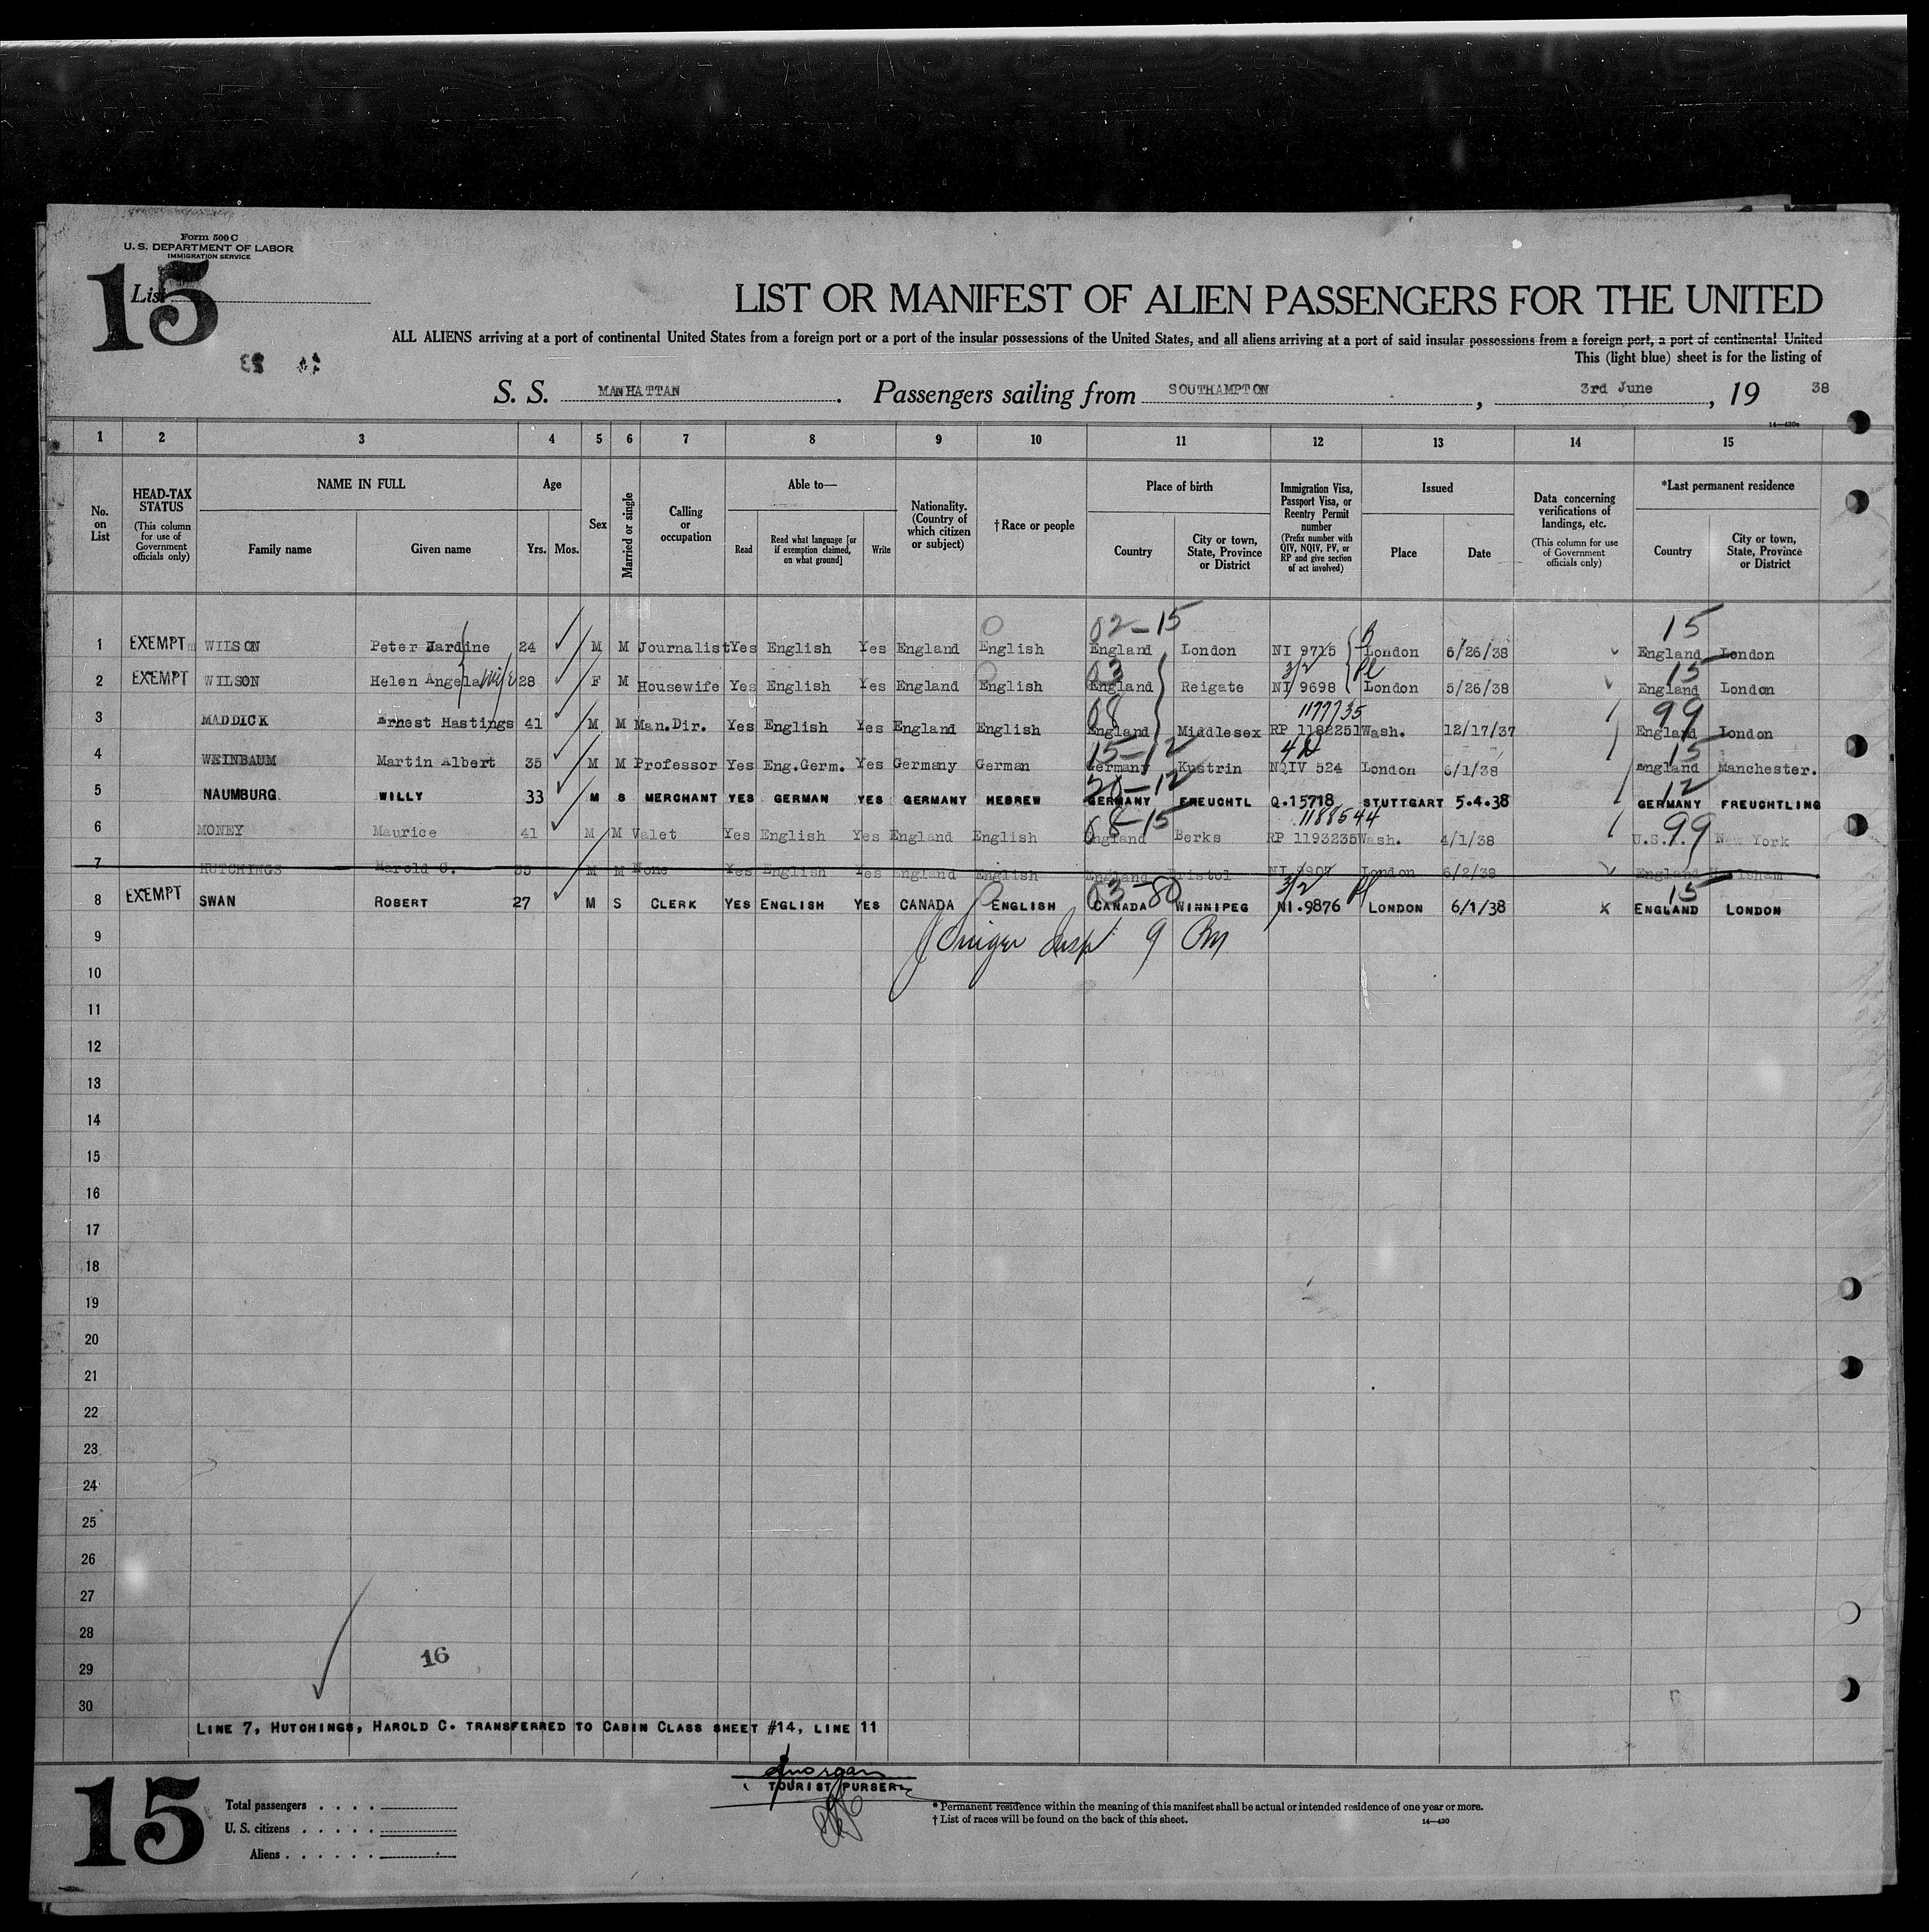 Form 500 C
U. S. DEPARTMENT OF LABOR
IMMIGRATION SERVICE
15
List
LIST OR MANIFEST OF ALIEN PASSENGERS FOR THE UNITED
ALL ALIENS arriving at a port of continental United States from a foreign port or a port of the insular possessions of the United States, and all aliens arriving at a port of said insular possessions from a foreign port, a port of continental United
This (light blue) sheet is for the listing of
S. S. MANHATTAN . Passengers sailing from SOUTHAMPTON , 3rd June , 19 38
1 2 3 4 5 6 7 8 9 10 11 12 13 14 15
No. on List
HEAD-TAX STATUS (This column for use of Government officials only)
NAME IN FULL
Family name
Given name
Age
Yrs. Mos.
Sex
Married or single
Calling or occupation
Able to—
Read
Read what language [or if exemption claimed, on what ground]
Write
Nationality. (Country of which citizen or subject)
† Race or people
Place of birth
Country
City or town, State, Province or District
Immigration Visa, Passport Visa, or Reentry Permit number (Prefix number with QIV, NQIV, PV, or RP and give section of act involved)
Issued
Place
Date
Data concerning verifications of landings, etc. (This column for use of Government officials only)
*Last permanent residence
Country
City or town, State, Province or District
02-15 15
1 EXEMPT WILSON Peter Jardine 24 M M Journalist Yes English Yes England English England London NI 9715 London 5/26/38 England London
03 3/2 15
2 EXEMPT WILSON Helen Angela wife 28 F M Housewife Yes English Yes England English England Reigate NI 9698 London 5/26/38 England London
08 1177735 99
3 MADDICK Ernest Hastings 41 M M Man.Dir. Yes English Yes England English England Middlesex RP 1182251 Wash. 12/17/37 England London
15-12 15
4 WEINBAUM Martin Albert 35 M M Professor Yes Eng.Germ. Yes Germany German Germany Kustrin NQIV 524 London 6/1/38 England Manchester.
20-12 12
5 NAUMBURG WILLY 33 M S MERCHANT YES GERMAN YES GERMANY HEBREW GERMANY FREUCHTL Q.15718 STUTTGART 5.4.38 GERMANY FREUCHTLING
08-15 1188544 99
6 MONEY Maurice 41 M M Valet Yes English Yes England English England Berks RP 1193235 Wash. 4/1/38 U.S.A. New York
7 HUTCHINGS Harold C. 35 M M None Yes English Yes England English England Bristol NI 9907 London 6/2/38 England
03-80 3/2 15
8 EXEMPT SWAN ROBERT 27 M S CLERK YES ENGLISH YES CANADA ENGLISH CANADA WINNIPEG NI.9876 LONDON 6/1/38 ENGLAND LONDON
9
10
11
12
13
14
15
16
17
18
19
20
21
22
23
24
25
26
27
28
29 16
30
LINE 7, HUTCHINGS, HAROLD C. TRANSFERRED TO CABIN CLASS SHEET #14, LINE 11
TOURIST PURSER
15
Total passengers
U. S. citizens
Aliens
* Permanent residence within the meaning of this manifest shall be actual or intended residence of one year or more.
† List of races will be found on the back of this sheet.
14—430